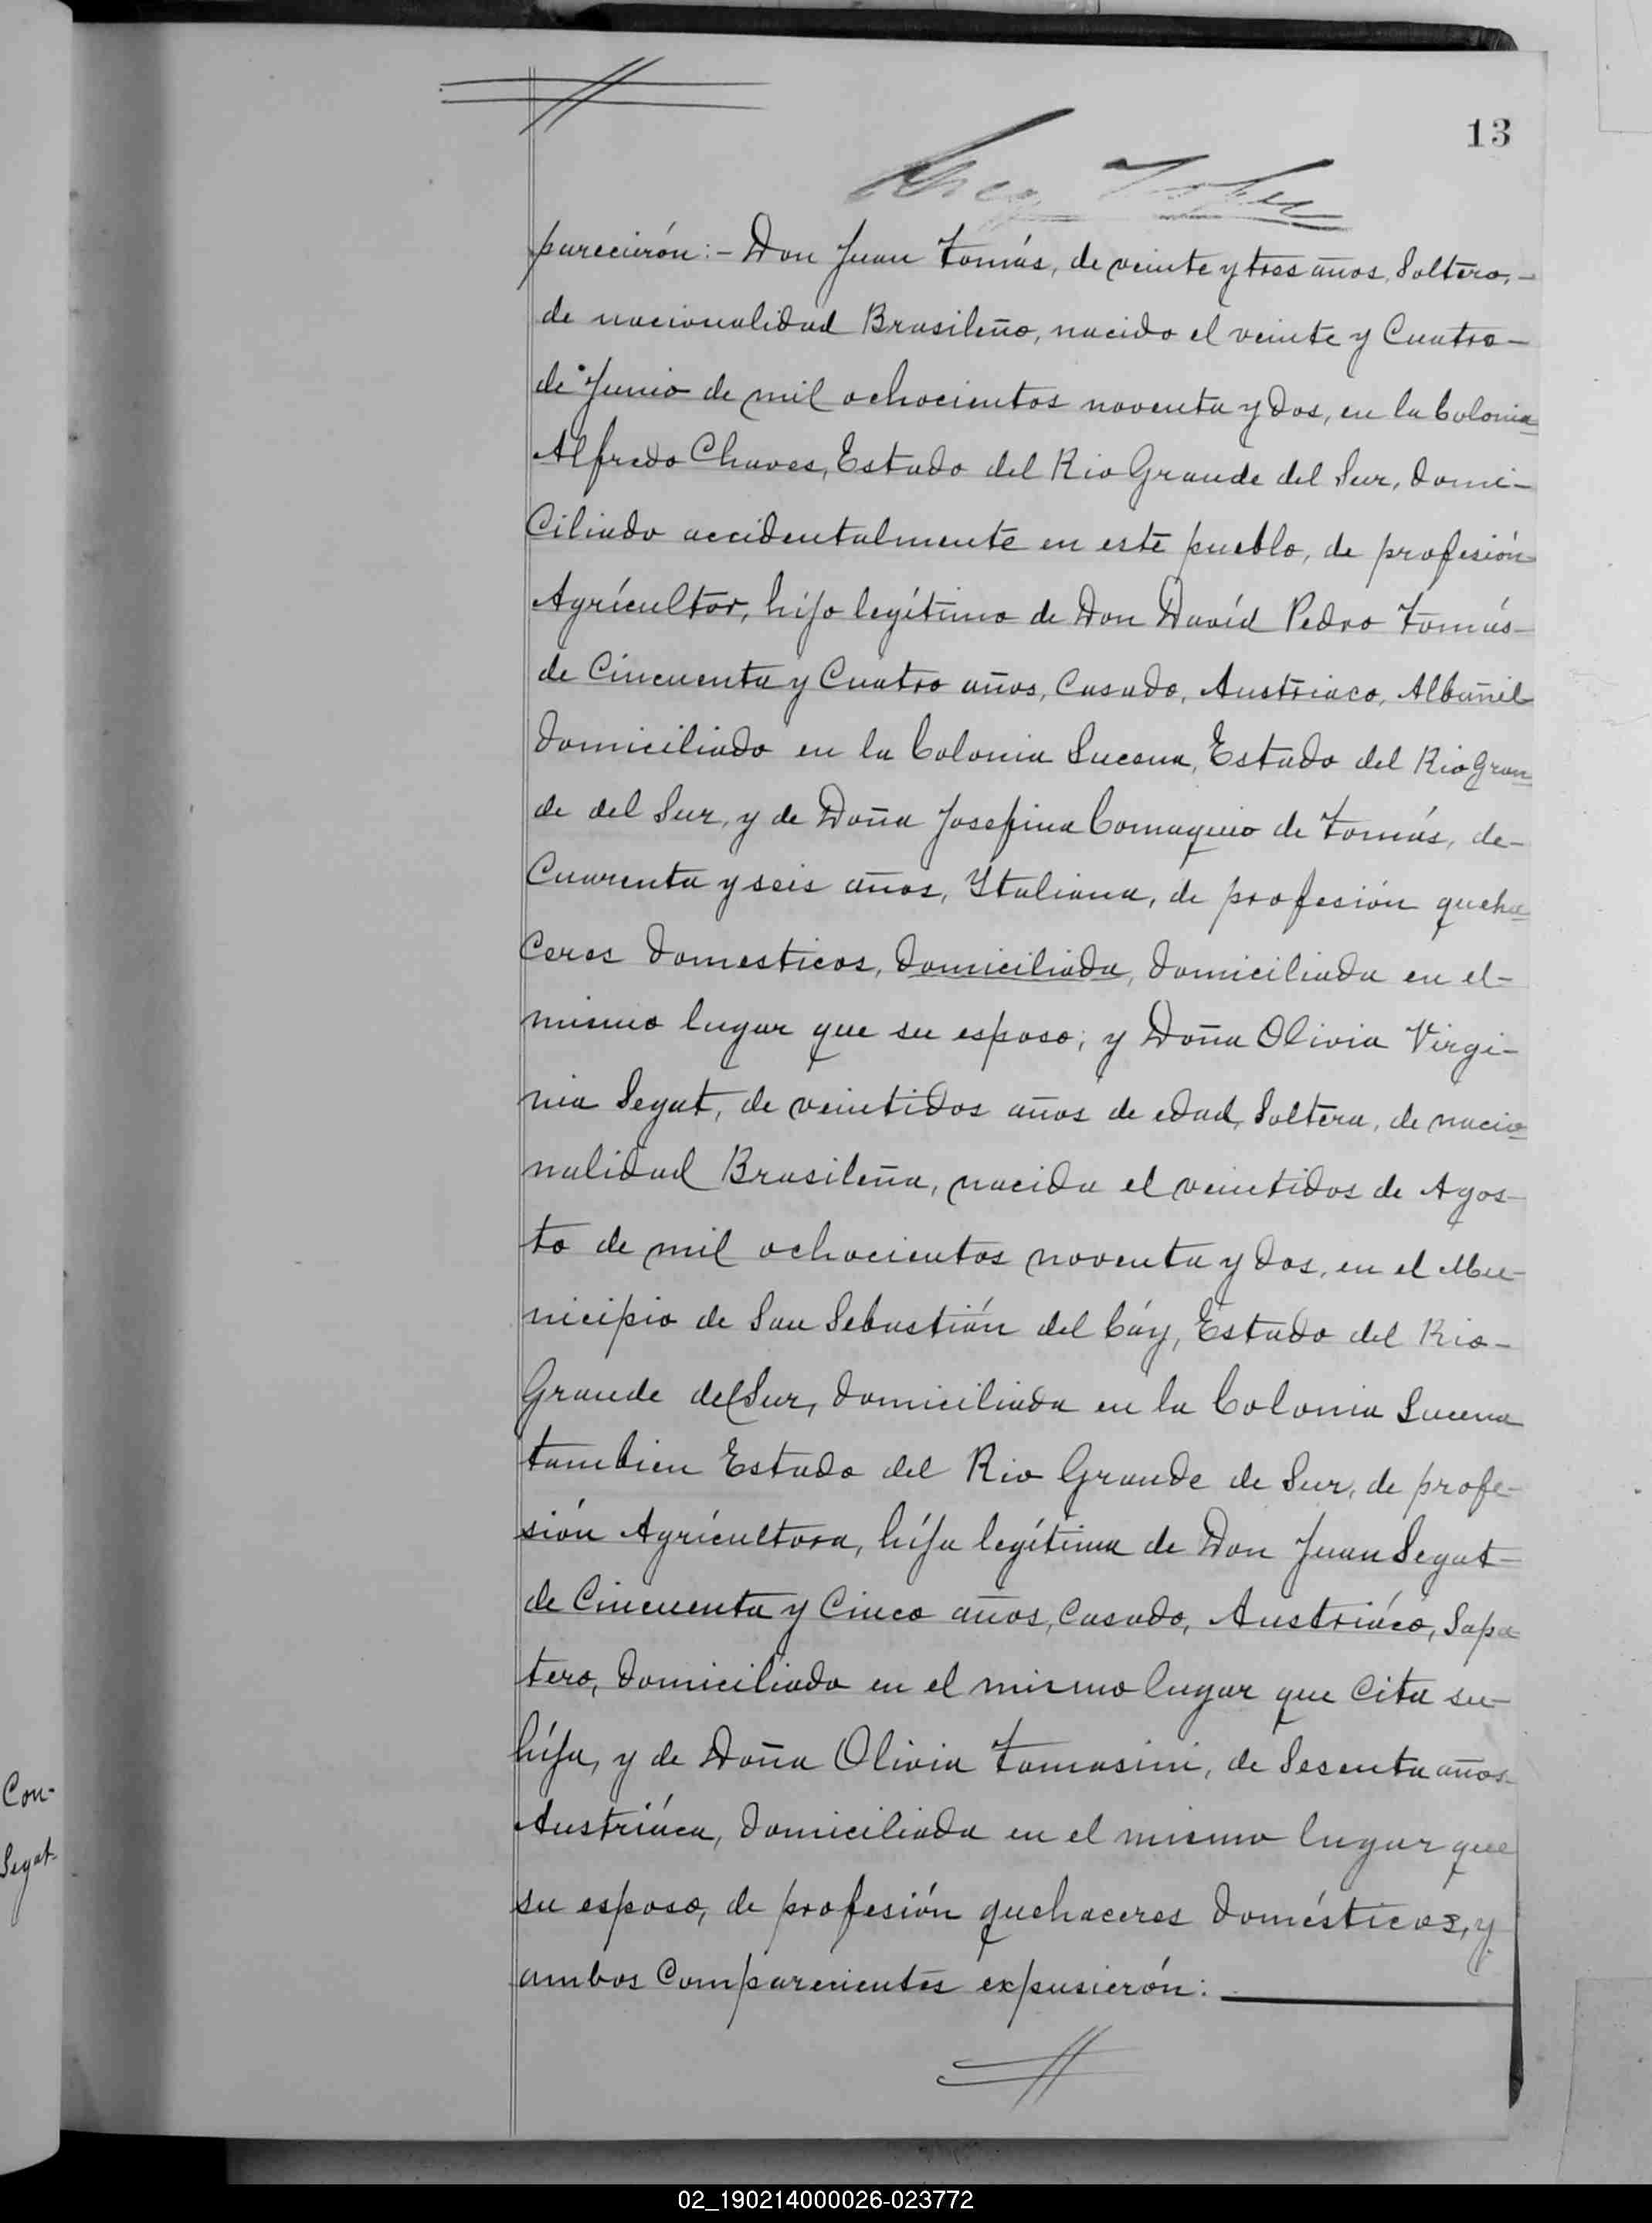 13
parecierón:- Don Juan Tomás, de veinte y tres años, Soltero,-
de nacionalidad Brasileño, nacido el veinte y Cuatro-
de Junio de mil ochocientos noventa y dos, en la Colonia
Alfredo Chaves, Estado del Rio Grande del Sur, domi-
Ciliado accidentalmente en este pueblo, de profesión
Agrícultor, híjo legítimo de Don Davíd Pedro Tomás-
de Cincuenta y Cuatro años, Casado, Austriaco, Albañil
domiciliado en la Colonia Lucena, Estado del Rio Gran
de del Sur, y de Doña Josefina Comaquio de Tomás, de-
Cuarenta y seis años, Ytaliana, de profesión queha
Ceres domesticos, domiciliada, domiciliada en el-
mismo lugar que su esposo; y Doña Olivia Virgi-
nia Segat, de veintidos años de edad, Soltera, de nacio
nalidad Brasileña, nacida el veintidos de Agos-
to de mil ochocientos noventa y dos, en el Mu-
nicipio de San Sebastián del Cáy, Estado del Rio-
Grande del Sur, domiciliada en la Colonia Lucena
tambien Estado del Rio Grande de Sur, de profe-
sión Agrícultora, híja legítima de Don Juan Segat-
de Cincuenta y Cinco años, Casado, Austriáco, Sapa
tero, domiciliado en el mismo lugar que Cita su-
híja, y de Doña Olivia Tomasini, de Sesenta años-
Austriáca, domiciliada en el mismo lugar que
su esposo, de profesión quehaceres domésticos, y
ambos Comparecientes expusierón:
Con-
Segat-
02_190214000026-023772